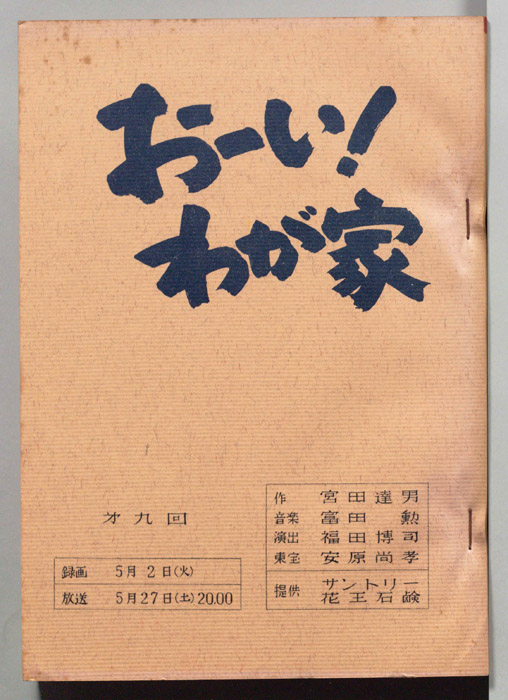 おーい!
わが家
才九回
録画 5月2日(火)
放送 5月27日(土)20.00
作 宮田達男
音楽 冨田 勲
演出 福田博司
東宝 安原尚孝
提供 サントリー
花王石鹸